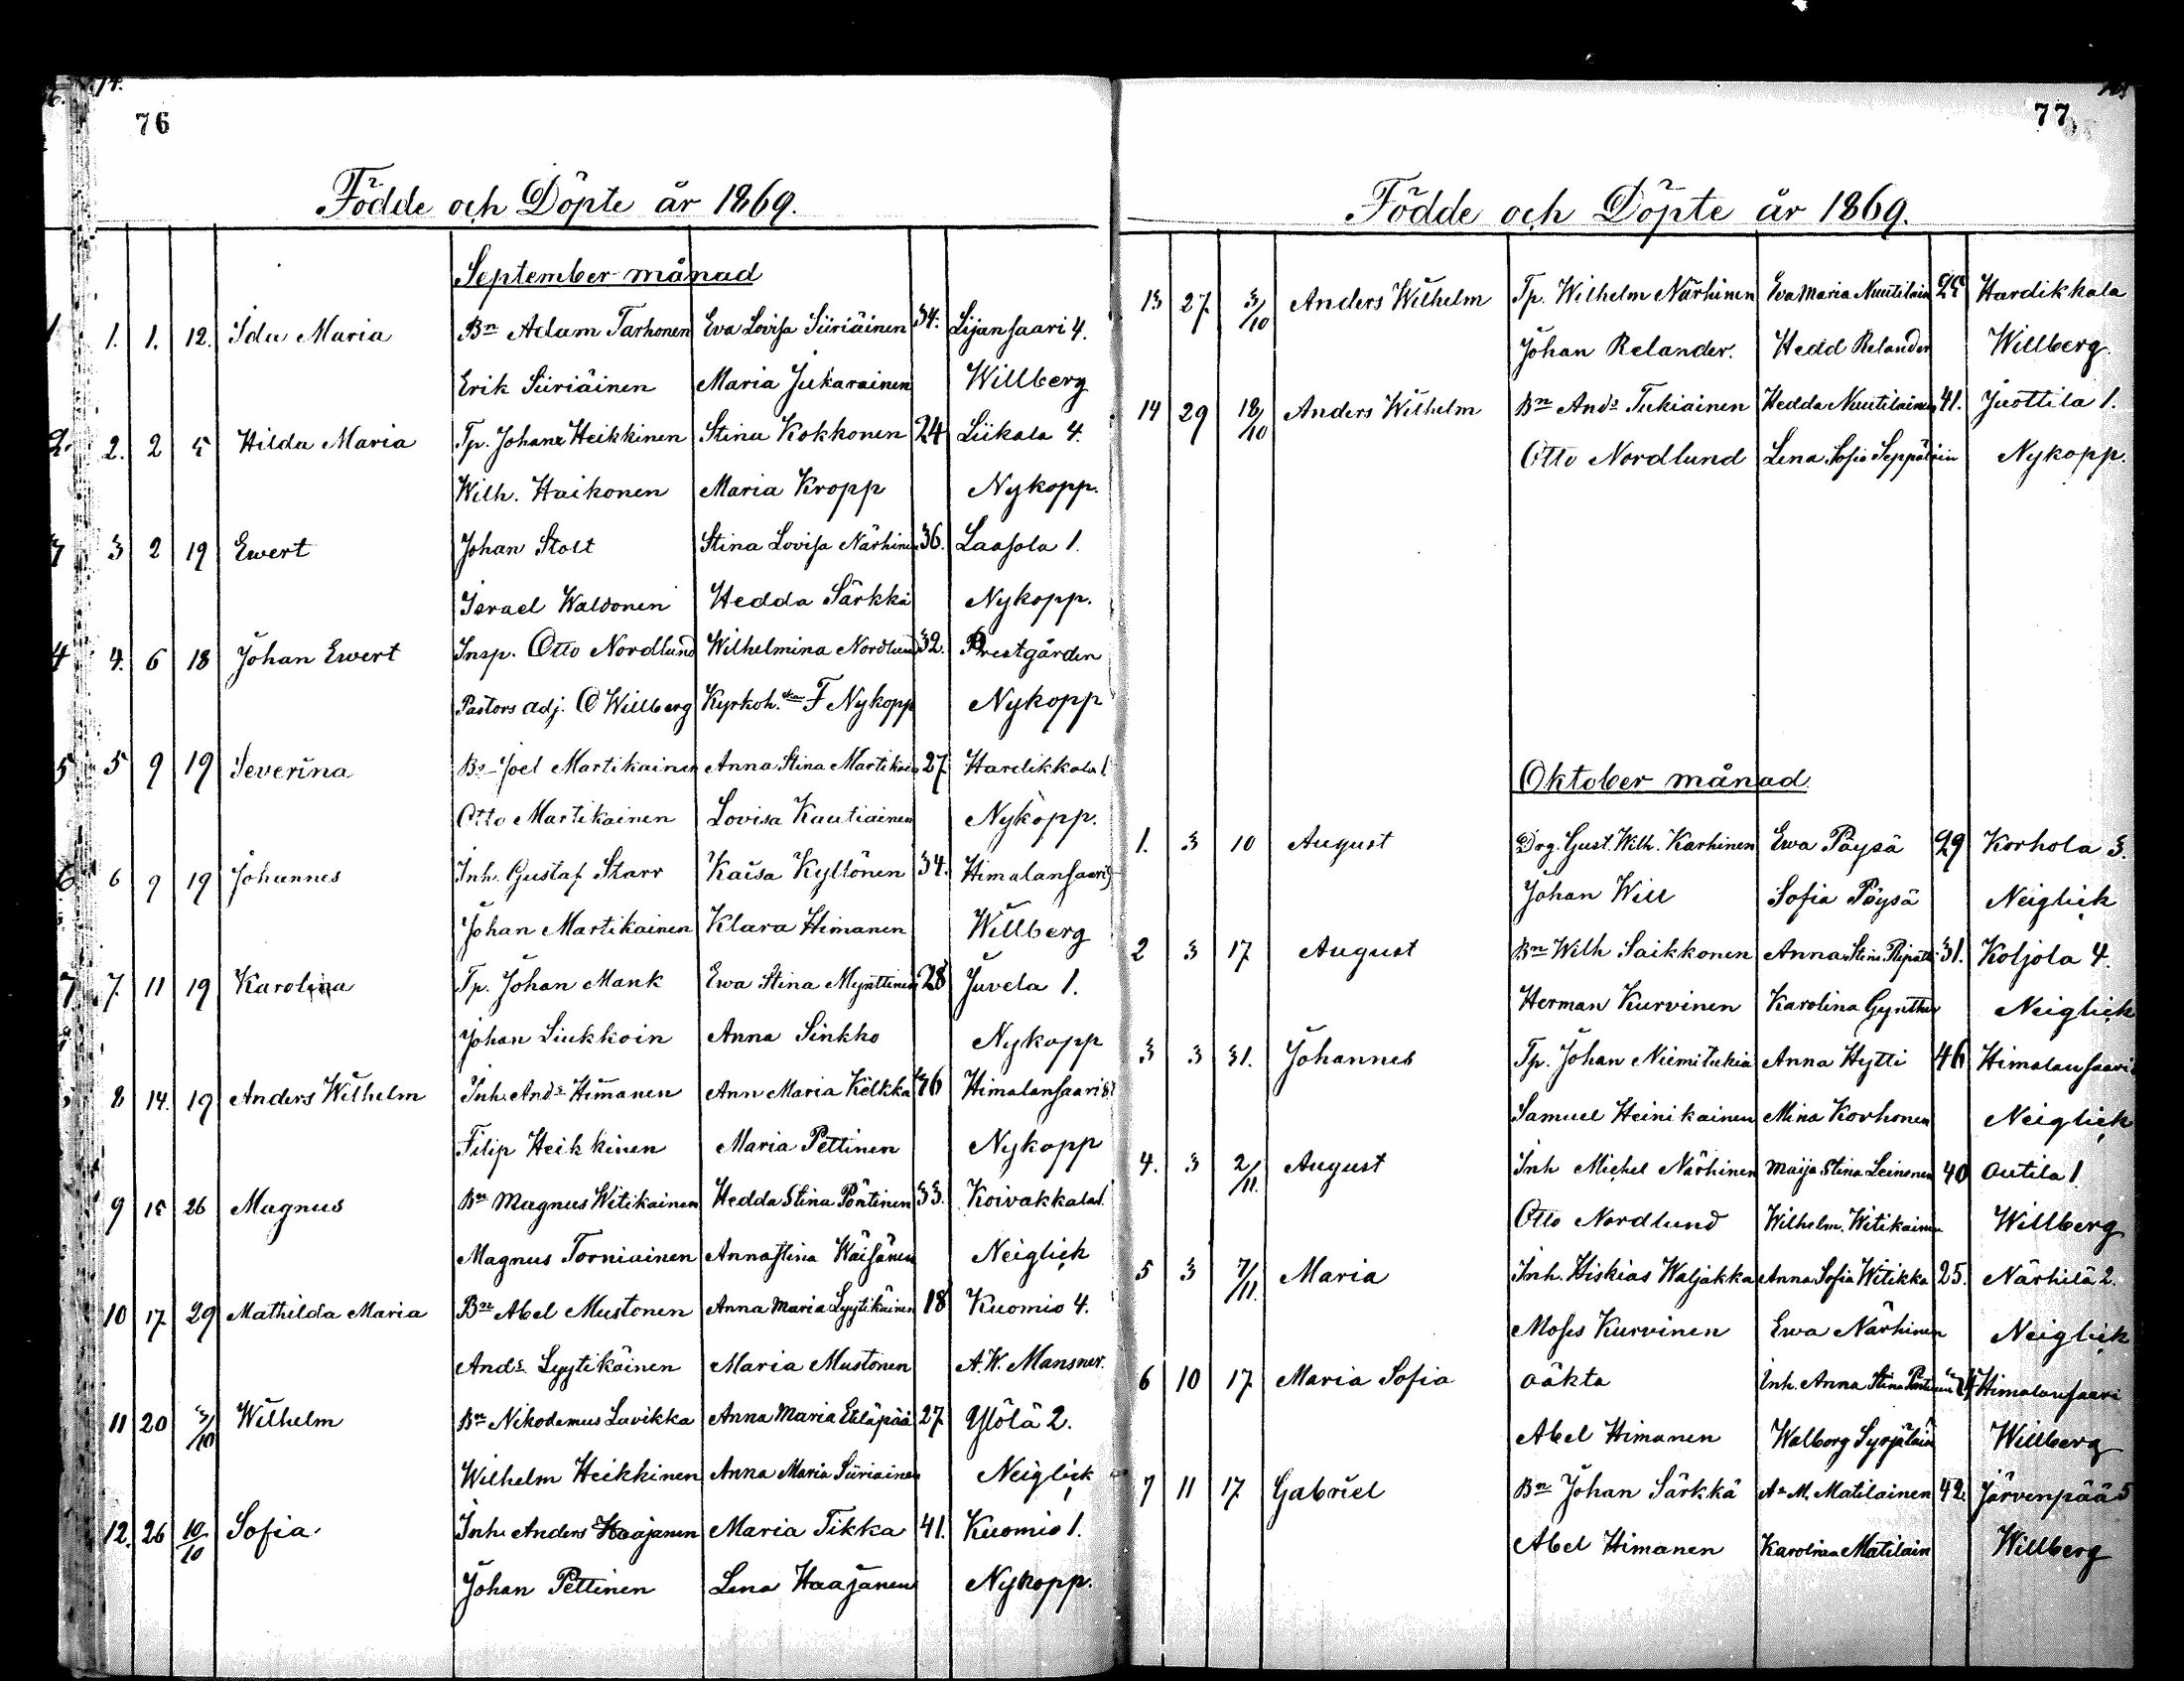 76
Födde och Döpte år 1869.
September månad
1 1. 1. 12. Ida Maria Bn Adam Tarhonen Eva Lovisa Siiriäinen 34. Lijansaari 4.
Erik Siiriäinen Maria Jukarainen Willberg
2. 2. 2 5 Hilda Maria Tp. Johan Heikkinen Stina Kokkonen 24 Liikala 4.
Wilh. Haikonen Maria Kropp Nykopp.
3 2 19 Ewert Johan Stolt Stina Lovisa Närhinen 36. Laasola 1.
Israel Waldonen Hedda Särkkä Nykopp.
4 4. 6 18 Johan Ewert Insp. Otto Nordlund Wilhelmina Nordlund 32. Prestgården
Pastors adj. O Willberg Kyrkoh. F Nykopp Nykopp
5 5 9 19 Severina Bn Joel Martikainen Anna Stina Martikain 27 Hardikkala 1.
Otto Martikainen Lovisa Kautiainen Nykopp.
6 6 9 19 Johannes Inh. Gustaf Starr Kaisa Kyllönen 34. Himalansaari
Johan Martikainen Klara Himanen Willberg
7 7. 11 19 Karolina Tp. Johan Mank Ewa Stina Mynttinen 28 Juvela 1.
Johan Liukkoin Anna Sinkko Nykopp
8 14. 19 Anders Wilhelm Inh. Ands Himanen Ann Maria Kelkka 36 Himalansaari 8.
Filip Heikkinen Maria Pettinen Nykopp
9 15 26 Magnus Bn Magnus Witikainen Hedda Stina Pöntinen 33. Koivakkala 1.
Magnus Torniainen Anna Stina Wäisänen Neiglick
10 17 29 Mathilda Maria Bn Abel Mustonen Anna Maria Lyytikäinen 18 Kuomio 4.
Ands. Lyytikäinen Maria Mustonen A. W. Mansner.
11 20 3/10 Wilhelm Bn Nikodemus Lavikka Anna Maria Eteläpää 27 Ylölä 2.
Wilhelm Heikkinen Anna Maria Siiriainen Neiglick
12. 26 10/10 Sofia Inh. Anders Haajanen Maria Tikka 41. Kuomio 1.
Johan Pettinen Lena Haajanen Nykopp.
77
Födde och Döpte år 1869.
13 27 3/10 Anders Wilhelm Tp. Wilhelm Närhinen Eva Maria Nuutilain 25 Hardikkala
Johan Relander. Hedd Relander Willberg.
14 29 18/10 Anders Wilhelm Bn Ands Tukiainen Hedda Nuutilainen 41. Juottila 1.
Otto Nordlund Lena Sofia Seppäläin Nykopp.
Oktober månad
1. 3 10 August Drg. Gust. Wilh. Karhinen Ewa Pöysä 29 Korhola 3.
Johan Will Sofia Pöysä Neiglick
2 3 17 August Bn Wilh Saikkonen Anna Stina 31. Koljola 4.
Herman Kurvinen Karolina Gynther Neiglick
3 3 31. Johannes Tp. Johan Niemitukia Anna Hytti 46 Himalansaari
Samuel Heinikainen Mina Korhonen Neiglick
4. 3 2/11. August Inh Michel Närhinen Maija Stina Leinonen 40 Outila 1
Otto Nordlund Wilhelm. Witikainen Willberg
5 3 7/11. Maria Inh. Hiskias Waljakka Anna Sofia Witikka 25. Närhilä 2.
Moses Kurvinen Ewa Närhinen Neiglick
6 10 17 Maria Sofia oäkta Inh. Anna Stina Himalansaari
Abel Himanen Walborg Syrjäläin Willberg
7 11 17 Gabriel Bn Johan Särkkä A. M. Matilainen 42. Järvenpää 5
Abel Himanen Karolina Matilain Willberg